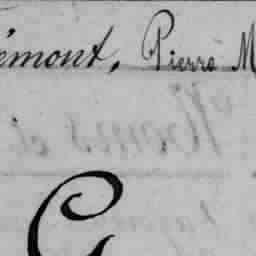 émont, Pierre M
G